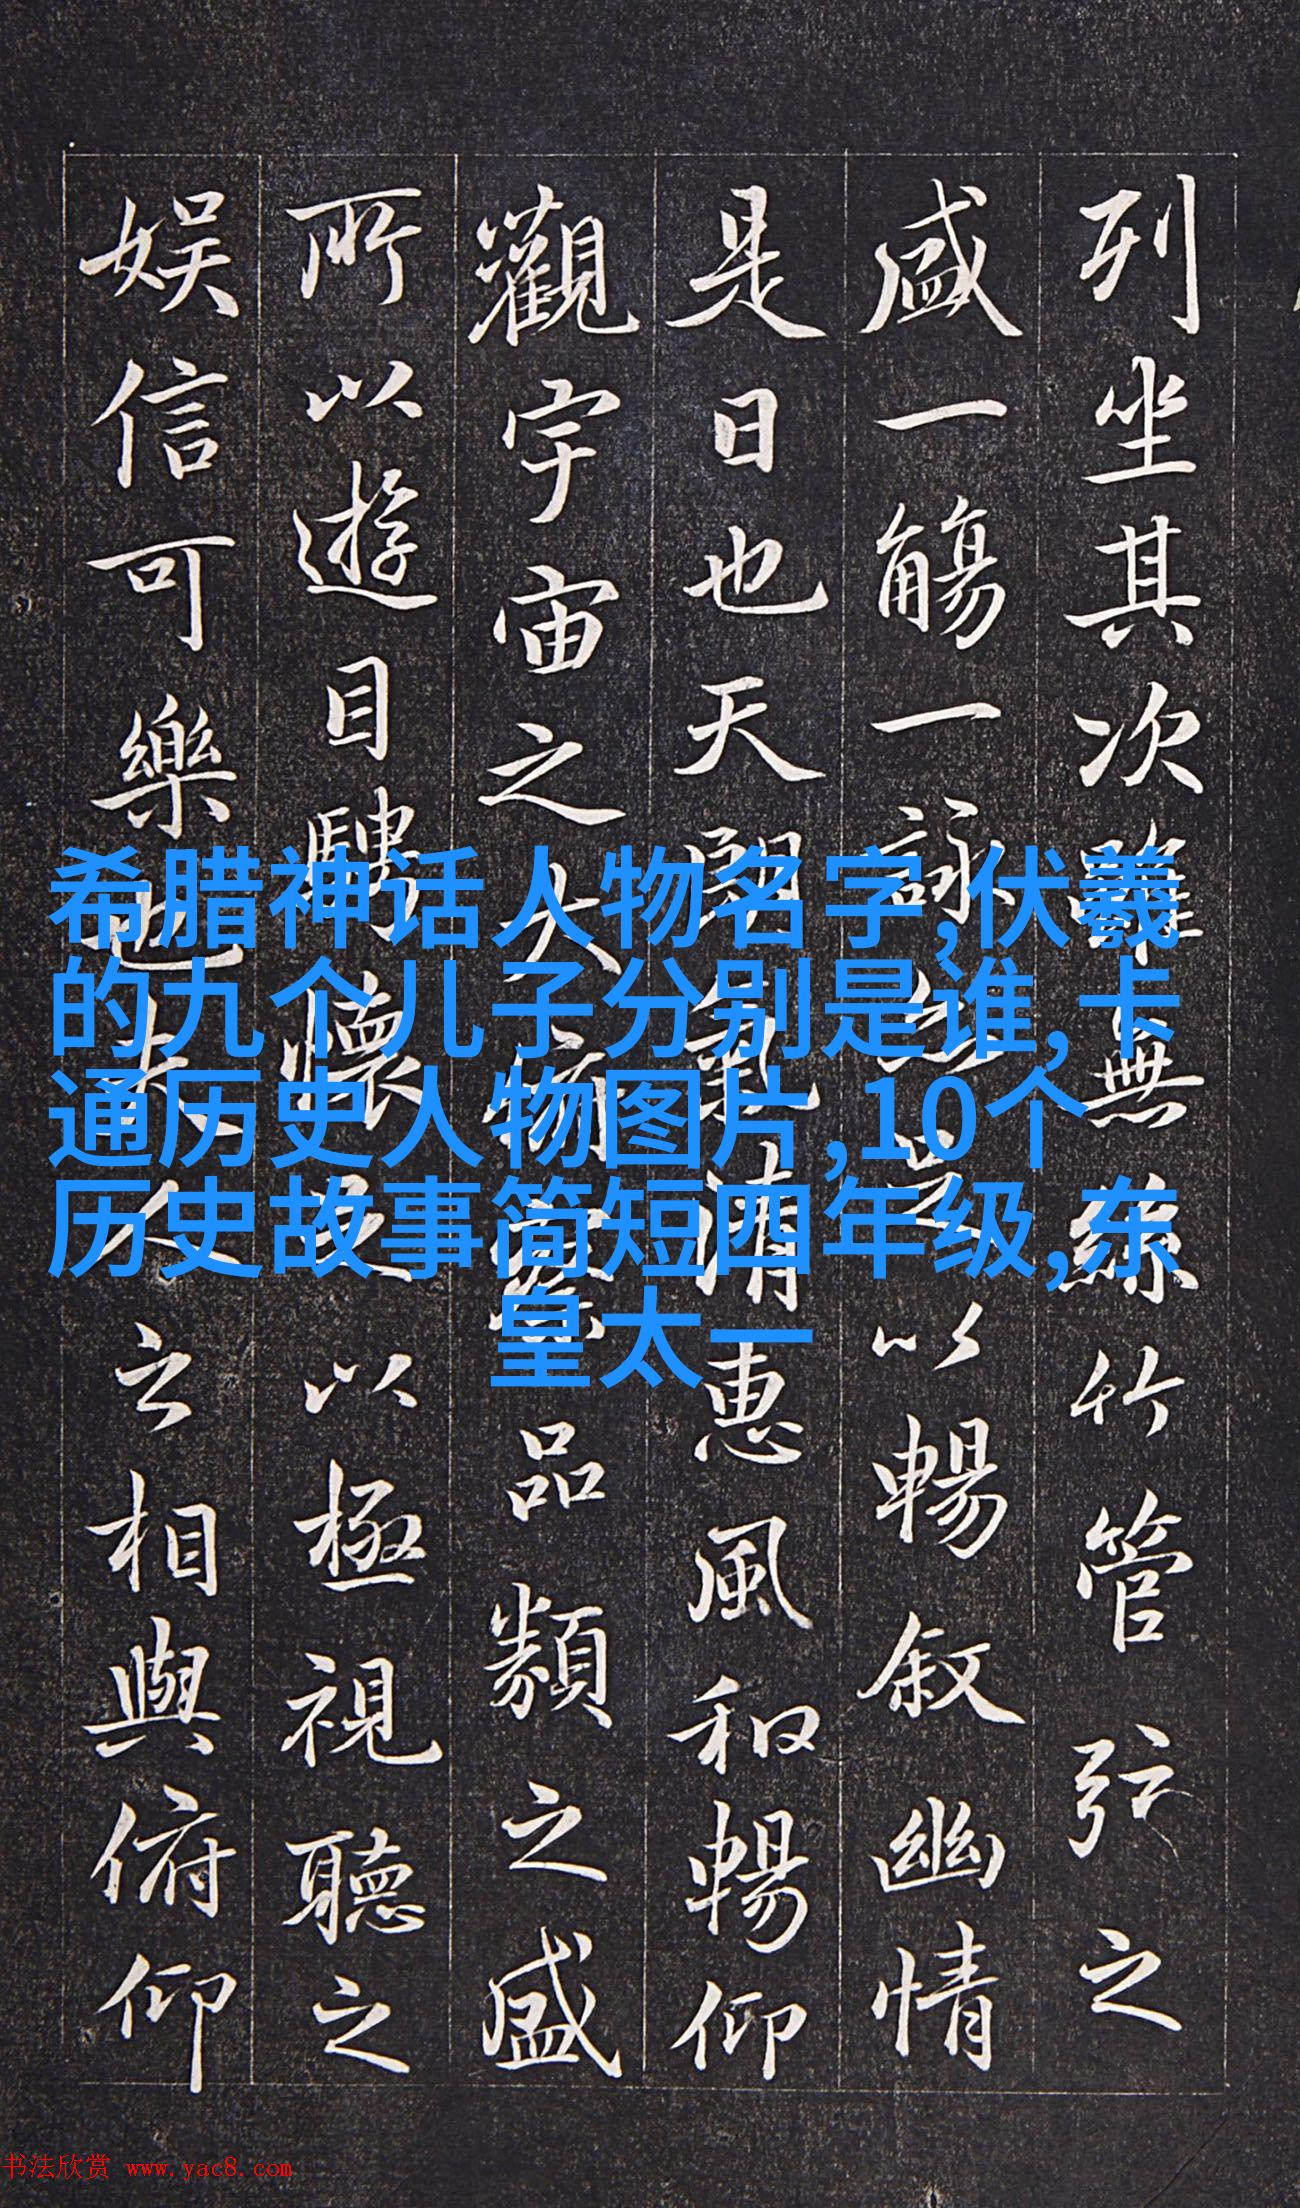 列坐其次雖無絲竹管弦之
盛一觴一詠亦足以暢敘幽情
是日也天朗氣清惠風和暢仰
觀宇宙之大俯察品類之盛
所以遊目騁懷足以極視聽之
娛信可樂也夫人之相與俯仰
希腊神话人物名字,伏羲
的九个儿子分别是谁,卡
通历史人物图片,10个
历史故事简短四年级,东
皇太一
书法欣赏 www.yac8.com